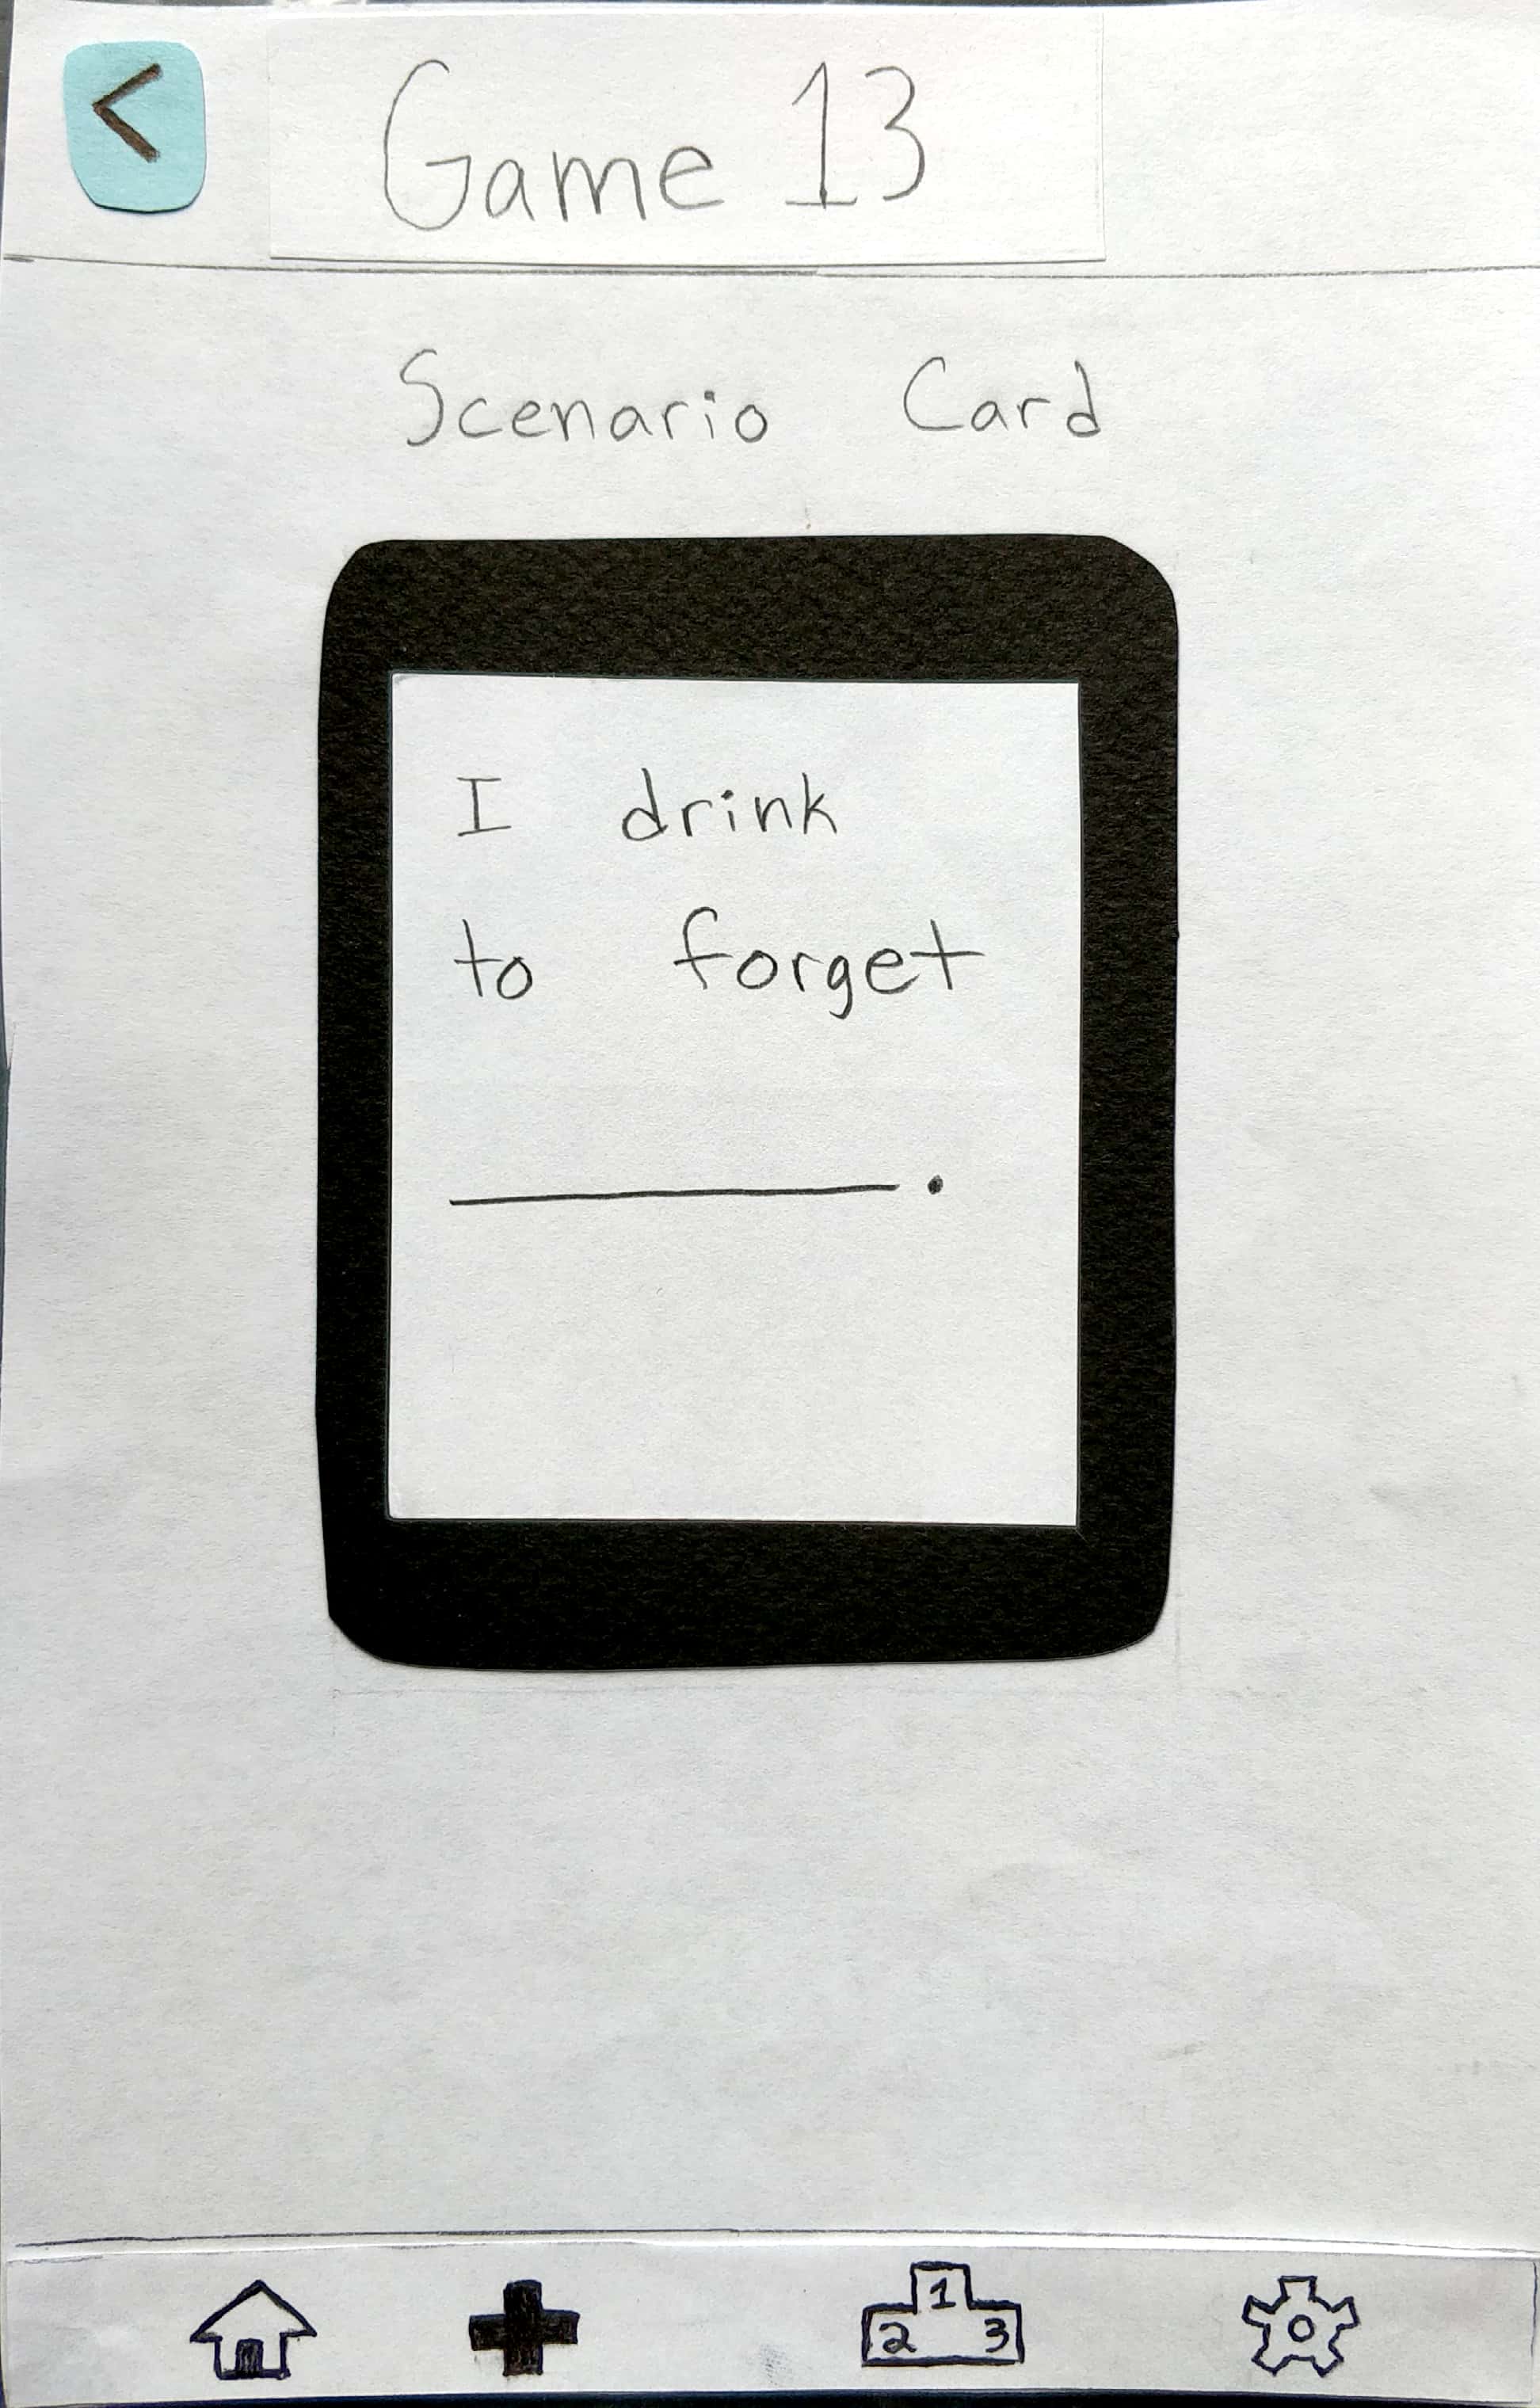 < Game 13
Scenario Card
I drink
to forget
__________.
1
2 3